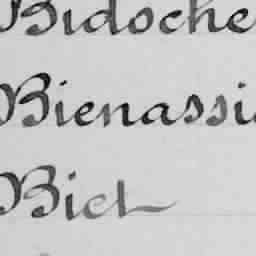 Bidoche
Bienassis
Biet